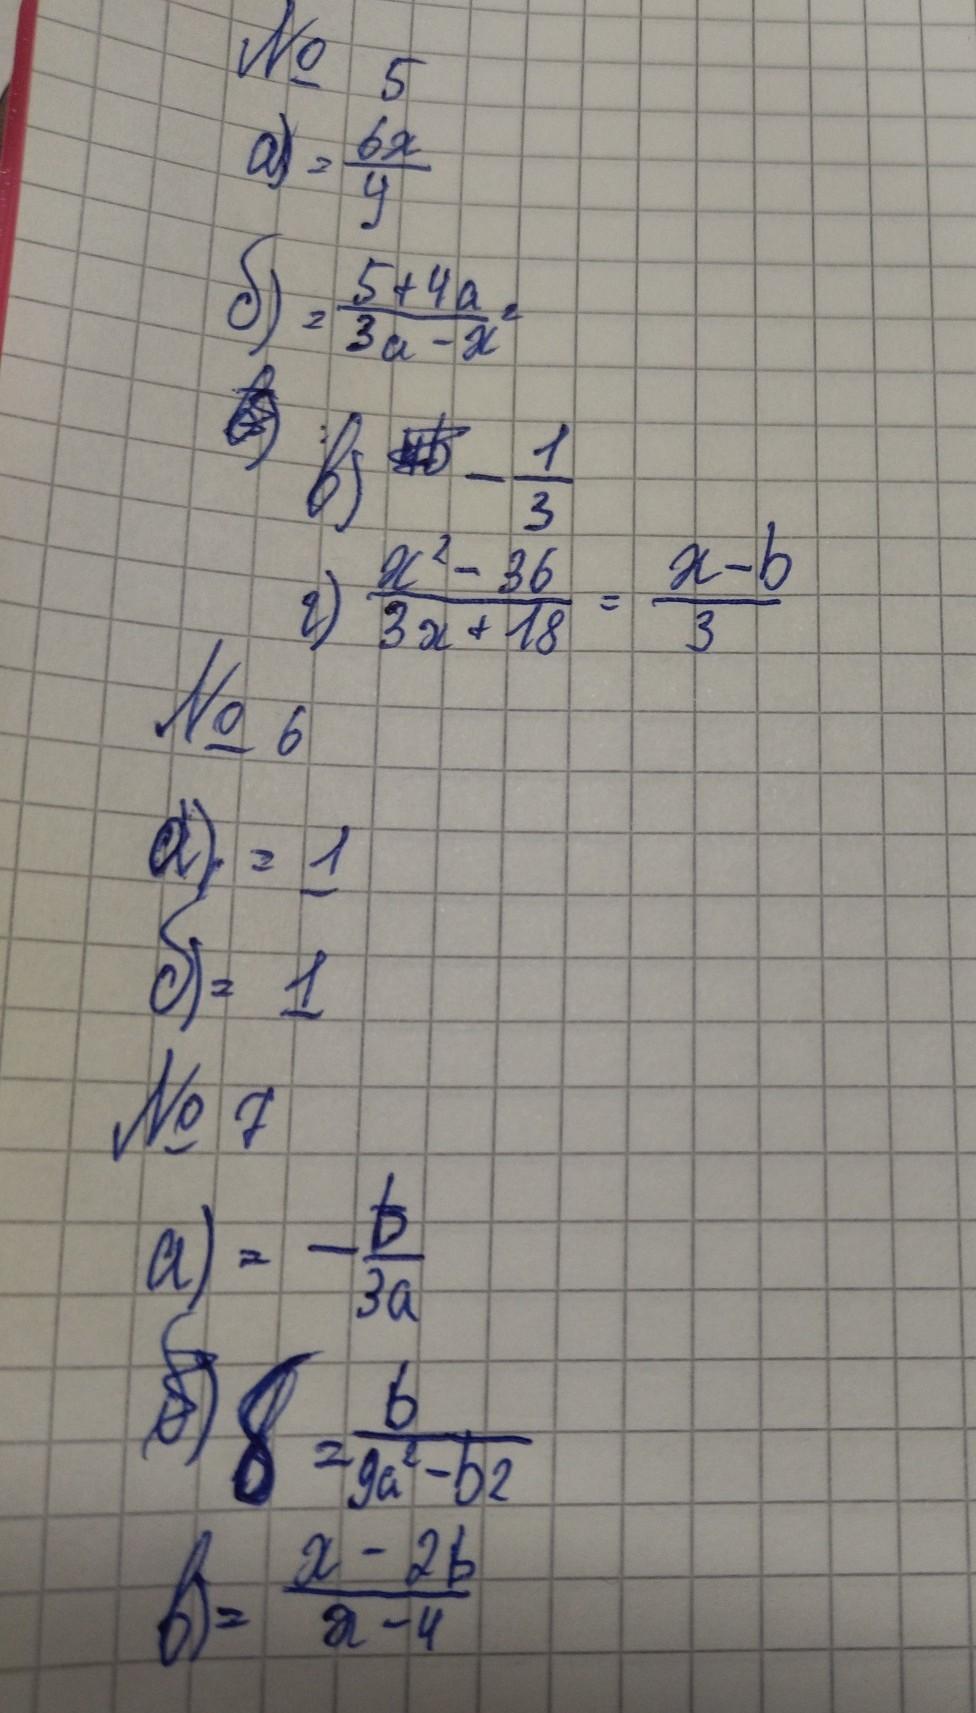 № 5
а) = 6x/y
б) = 5+4a/3a-x =
в) - 1/3
г) x²-36/3x+18 = x-b/3
№ 6
а) = 1
б) = 1
№ 7
а) = - b/3a
б) = b/9a²-b2
в) = x-2b/x-4